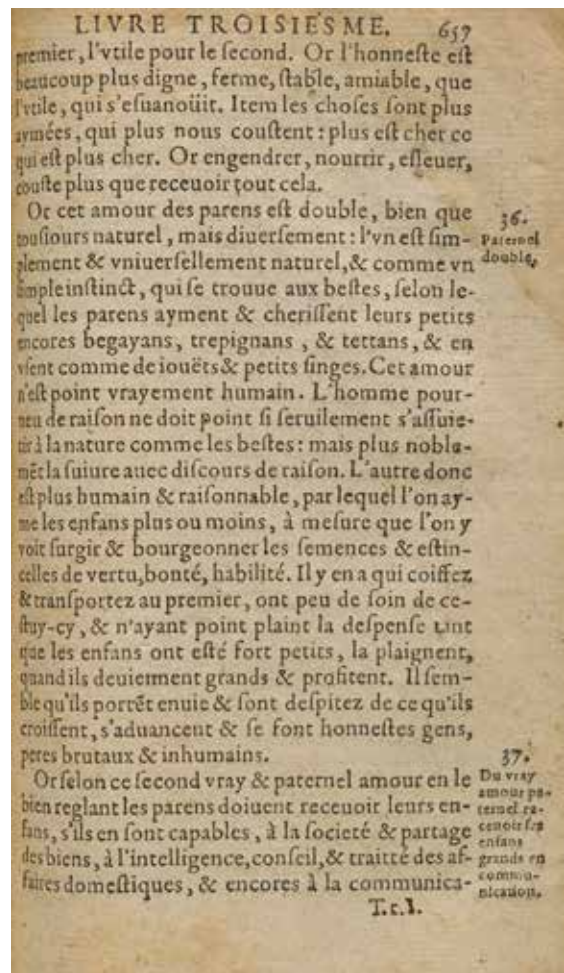 LIVRE TROISIESME. 657
premier, l'vtile pour le ſecond. Or l'honneſte eſt
beaucoup plus digne, ferme, ſtable, amiable, que
l'vtile, qui s'eſuanoüit. Item les choſes ſont plus
aymées, qui plus nous couſtent : plus eſt cher ce
qui eſt plus cher. Or engendrer, nourrir, eſleuer,
couſte plus que receuoir tout cela.
Or cet amour des parens eſt double, bien que
touſiours naturel, mais diuerſement : l'vn eſt ſim-
plement & vniuerſellement naturel, & comme vn
ſimple inſtinct, qui ſe trouue aux beſtes, ſelon le-
quel les parens ayment & cheriſſent leurs petits
encores begayans, trepignans, & tettans, & en
vſent comme de iouëts & petits ſinges. Cet amour
n'eſt point vrayement humain. L'homme pour-
neu de raiſon ne doit point ſi ſeruilement s'aſſuie-
tir à la nature comme les beſtes : mais plus noble-
mẽt la ſuiure auec diſcours de raiſon. L'autre donc
eſt plus humain & raiſonnable, par lequel l'on ay-
me les enfans plus ou moins, à meſure que l'on y
voit ſurgir & bourgeonner les ſemences & eſtin-
celles de vertu, bonté, habilité. Il y en a qui coiffez
& tranſportez au premier, ont peu de ſoin de ce-
ſtuy-cy, & n'ayant point plaint la deſpenſe tant
que les enfans ont eſté fort petits, la plaignent,
quand ils deuiennent grands & profitent. Il ſem-
ble qu'ils portẽt enuie & ſont deſpitez de ce qu'ils
croiſſent, s'aduancent & ſe font honneſtes gens,
peres brutaux & inhumains.
Or ſelon ce ſecond vray & paternel amour en le
bien reglant les parens doiuent receuoir leurs en-
fans, s'ils en ſont capables, à la ſocieté & partage
des biens, à l'intelligence, conſeil, & traitté des af-
faires domeſtiques, & encores à la communica-
T.t.1.
36.
Paternel
double,
37.
Du vray
amour pa-
ternel re-
ceuoir ſes
enfans
grands en
commu-
nication.